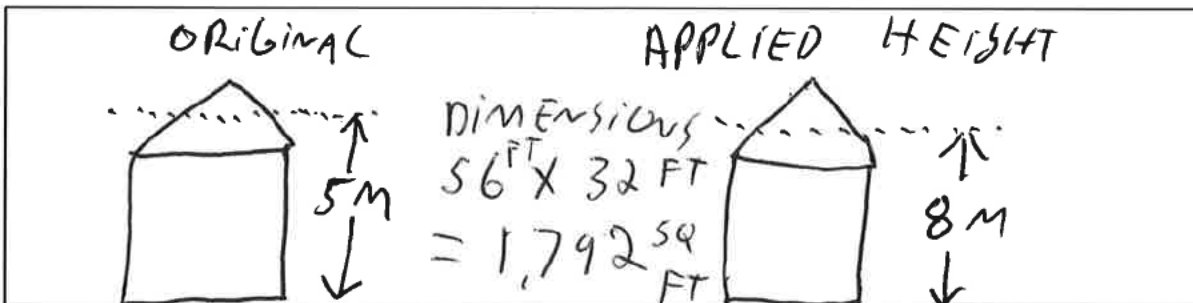 ORIGINAL
APPLIED HEIGHT
5M
DIMENSIONS
56FT X 32 FT
= 1,792 SQ FT
8M